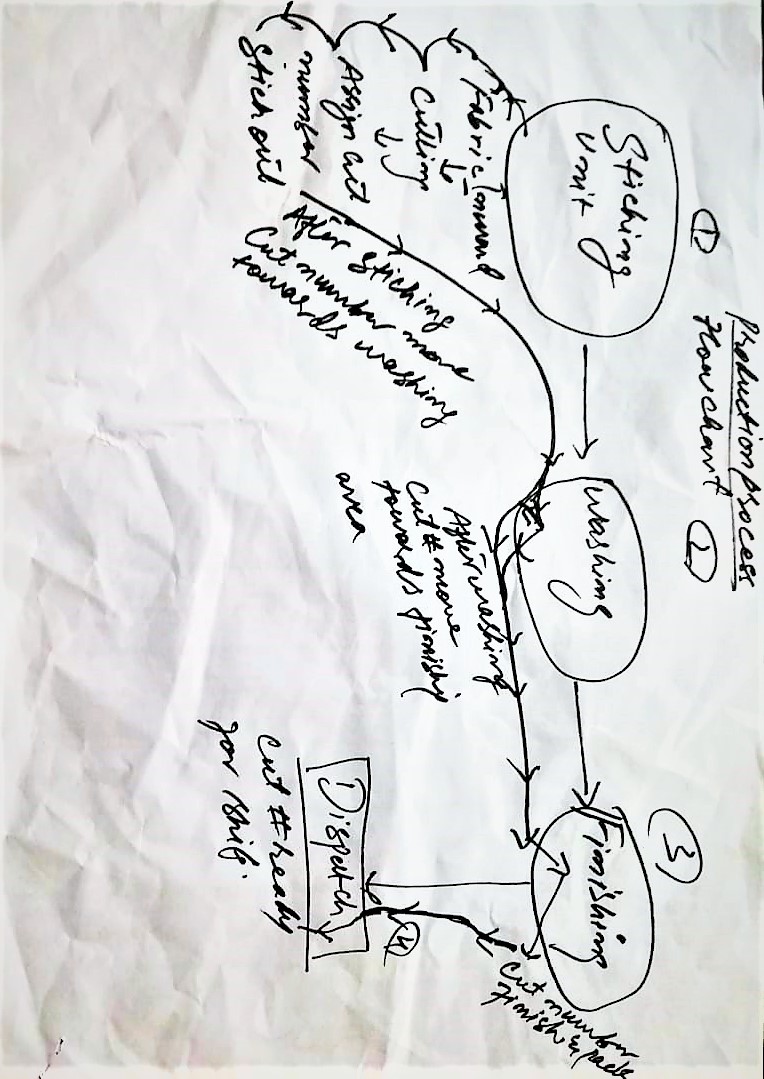 Production process
Flow chart
1
Stiching
Unit
Fabric Inward
Cutting
Assign Cut
number
Stich out
After Stiching
Cut number move
towards washing
2
Washing
After washing
Cut # move
towards finishig
area
3
Finishing
Cut number
finish & pack
4
Dispatch
Cut # ready
for ship.